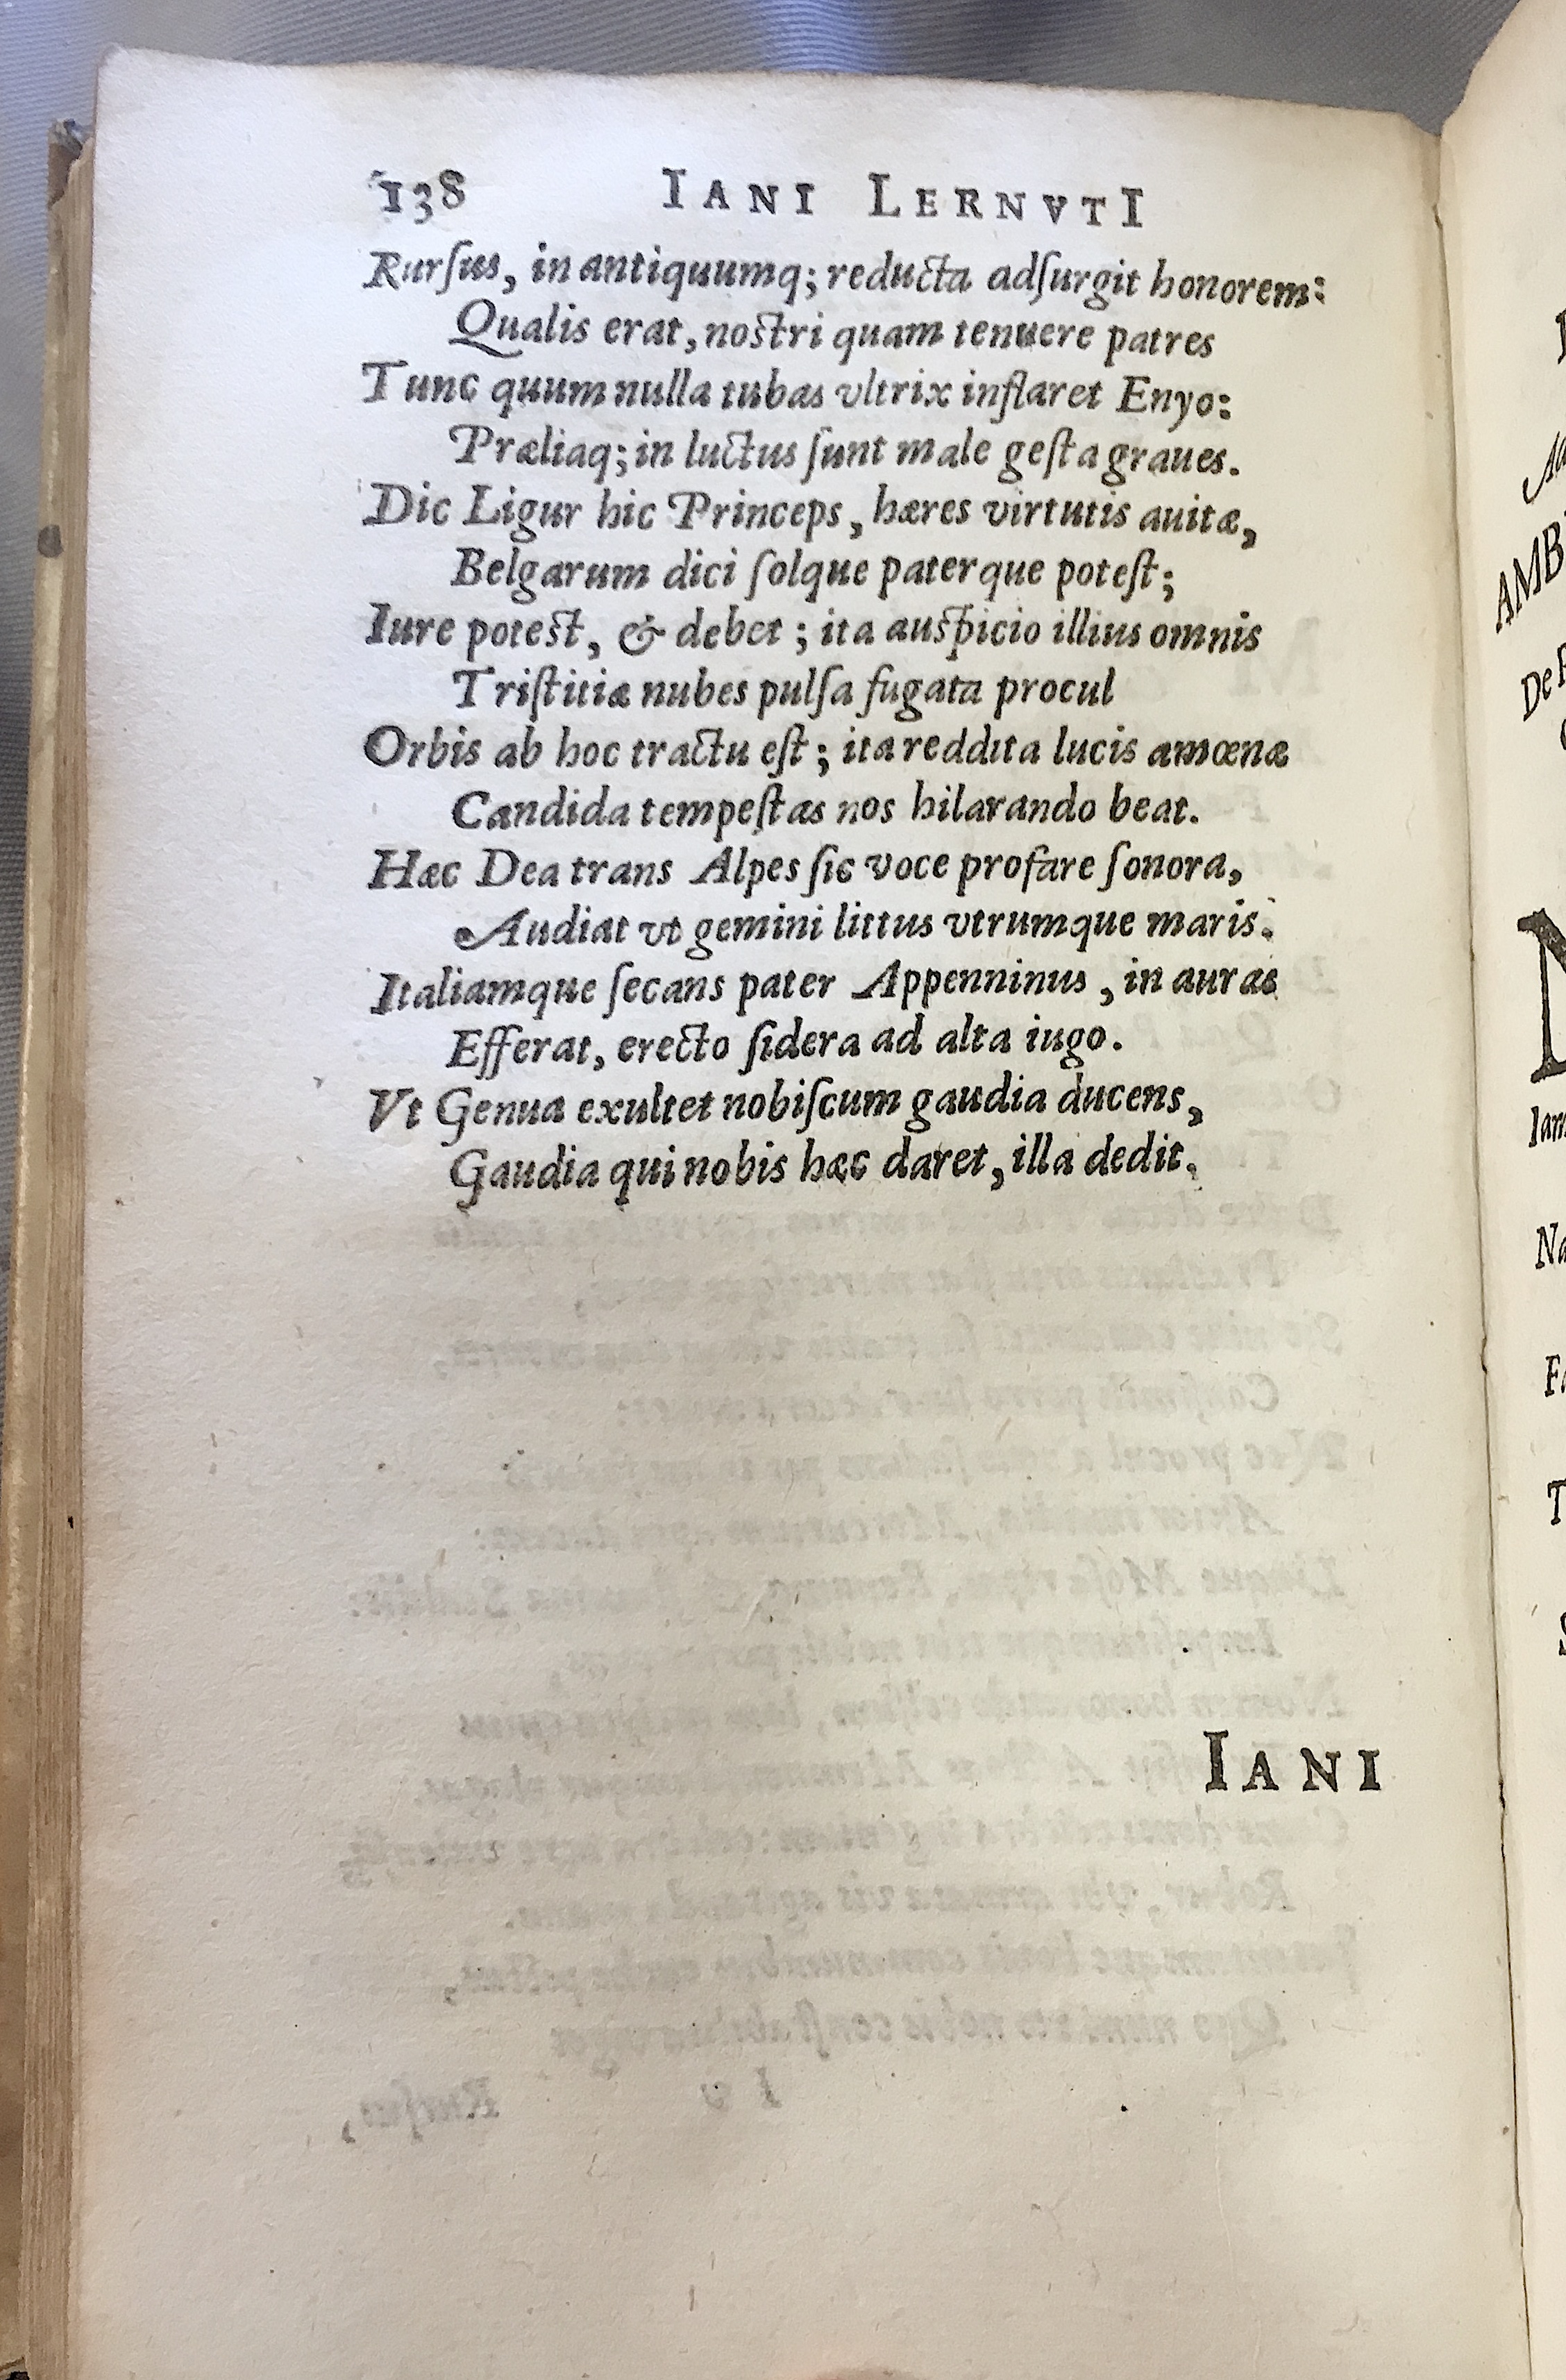 138 IANI LERNVTI
Rurſus, in antiquumq; reducta adſurgit honorem:
Qualis erat, noſtri quam tenuere patres
Tunc quum nulla tubas vltrix inflaret Enyo:
Præliaq; in luctus ſunt male geſta graues.
Dic Ligur hic Princeps, hæres virtutis auitæ,
Belgarum dici ſolque paterque poteſt;
Iure poteſt, & debet; ita auſpicio illius omnis
Triſtitiæ nubes pulſa fugata procul
Orbis ab hoc tractu eſt; ita reddita lucis amœnæ
Candida tempeſtas nos hilarando beat.
Hæc Dea trans Alpes ſic voce profare ſonora,
Audiat vt gemini littus vtrumque maris.
Italiamque ſecans pater Appenninus, in auras
Efferat, erecto ſidera ad alta iugo.
Vt Genua exultet nobiſcum gaudia ducens,
Gaudia qui nobis hæc daret, illa dedit.
IANI